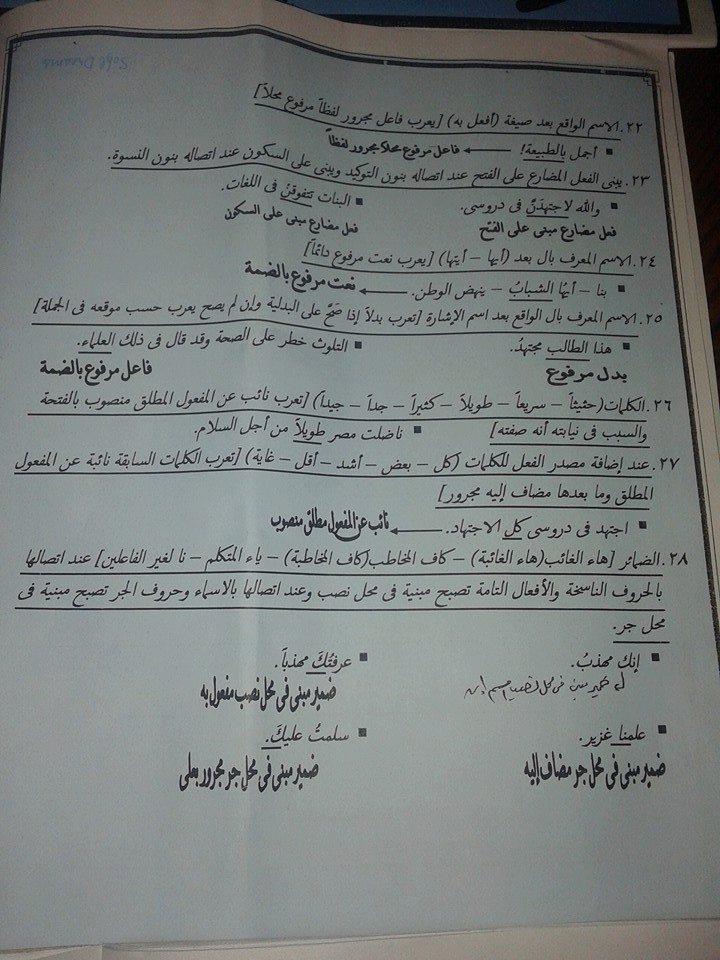 Soft Dreams
٢٢. الاسم الواقع بعد صيغة (أفعل به) [يعرب فاعل مجرور لفظاً مرفوع محلاً]
▪ أجمل بالطبيعة! ← فاعل مرفوع محلا مجرور لفظاً
٢٣. يبنى الفعل المضارع على الفتح عند اتصاله بنون التوكيد ويبنى على السكون عند اتصاله بنون النسوة.
▪ والله لاجتهدَنَّ فى دروسى. ▪ البنات تتفوقنْ فى اللغات.
فعل مضارع مبنى على الفتح فعل مضارع مبنى على السكون
٢٤. الاسم المعرف بال بعد (أيها – أيتها) [يعرب نعت مرفوع دائماً]
▪ بنا – أيها الشبابُ – ينهض الوطن. ← نعت مرفوع بالضمة
٢٥. الاسم المعرف بال الواقع بعد اسم الإشارة [تعرب بدلاً إذا صَحَّ على البدلية وإن لم يصح يعرب حسب موقعه فى الجملة]
▪ هذا الطالب مجتهدُ. ▪ التلوث خطر على الصحة وقد قال فى ذلك العلماء.
بدل مرفوع فاعل مرفوع بالضمة
٢٦. الكلمات (حثيثاً – سريعاً – طويلاً – كثيراً – جداً – جيداً) [تعرب نائب عن المفعول المطلق منصوب بالفتحة
والسبب فى نيابته أنه صفته] ▪ ناضلت مصر طويلاً من أجل السلام.
٢٧. عند إضافة مصدر الفعل للكلمات (كل – بعض – أشد – أقل – غاية) [تعرب الكلمات السابقة نائبة عن المفعول
المطلق وما بعدها مضاف إليه مجرور]
▪ اجتهد فى دروسى كل الاجتهاد. ← نائب عن المفعول مطلق منصوب
٢٨. الضمائر [هاء الغائب (هاء الغائبة) – كاف المخاطب (كاف المخاطبة) – ياء المتكلم – نا لغير الفاعلين] عند اتصالها
بالحروف الناسخة والأفعال التامة تصبح مبنية فى محل نصب وعند اتصالها بالاسماء وحروف الجر تصبح مبنية فى
محل جر.
▪ إنك مهذبُ. ▪ عرفتُكَ مهذباً.
ضمير مبنى فى محل نصب اسم إن ضمير مبنى فى محل نصب مفعول به
▪ علمنا غزير. ▪ سلمتُ عليكَ.
ضمير مبنى فى محل جر مضاف إليه ضمير مبنى فى محل جر مجرور بعلى